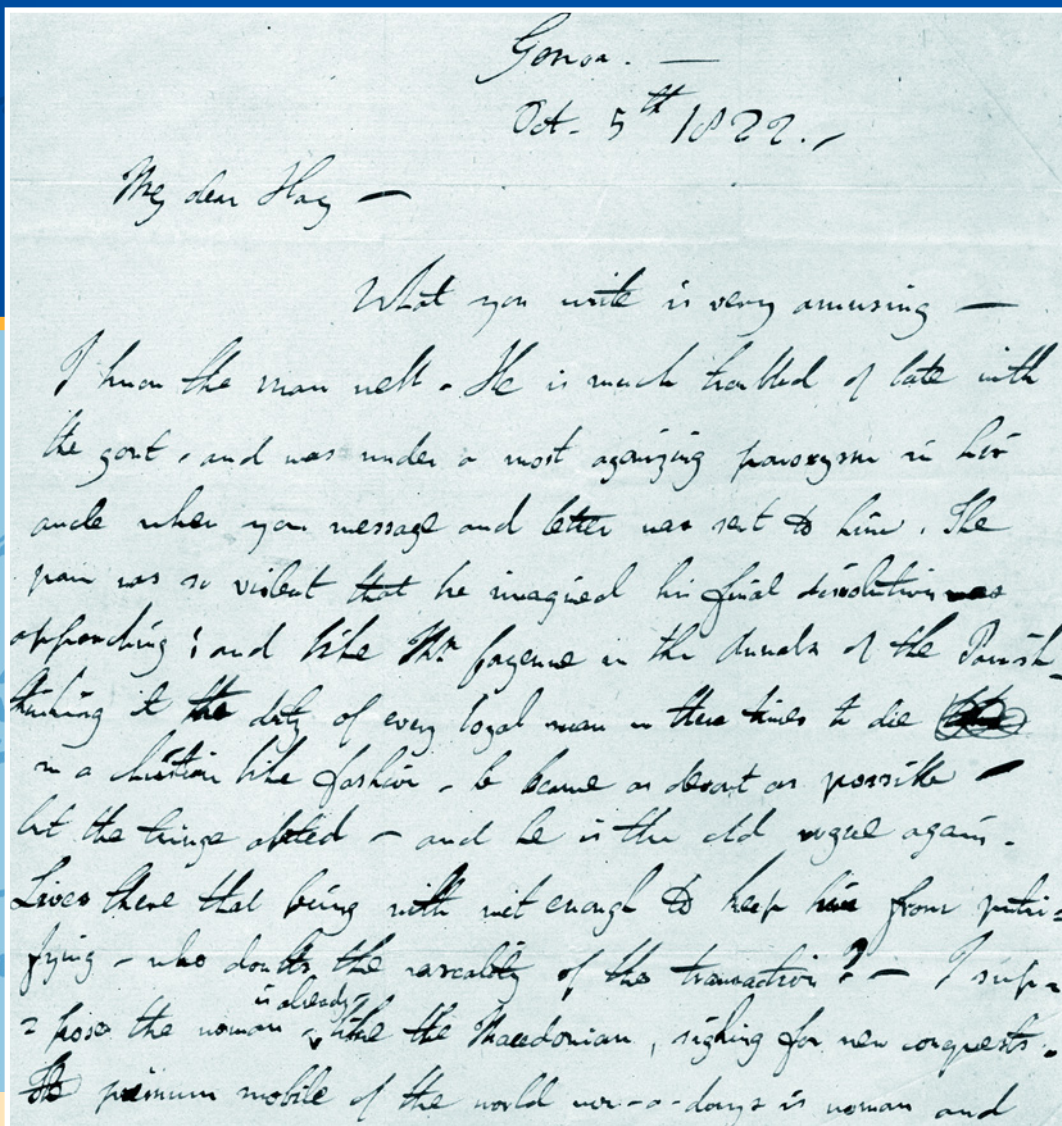 Genoa. —
Oct. 5th 1822.,
My dear Hay —
What you write is very amusing —
I know the man well. He is much troubled of late with
the gout, and was under a most agonizing paroxysm in his
ancle when you message and letter was sent to him. The
pain was so violent that he imagined his final dissolution was
approaching; and like Mr. in the Annals of the Parish
thinking it the duty of every loyal man in these times to die
in a christian like fashion, he became as devout as possible —
but the twinge abated — and he is the old rogue again.
Lives there that being with wit enough to keep him from putri=
fying — who doubts the rascality of the transaction? — I sup=
=pose the woman is already like the Macedonian, sighing for new conquests.
The primum mobile of the world now-a-days is woman and